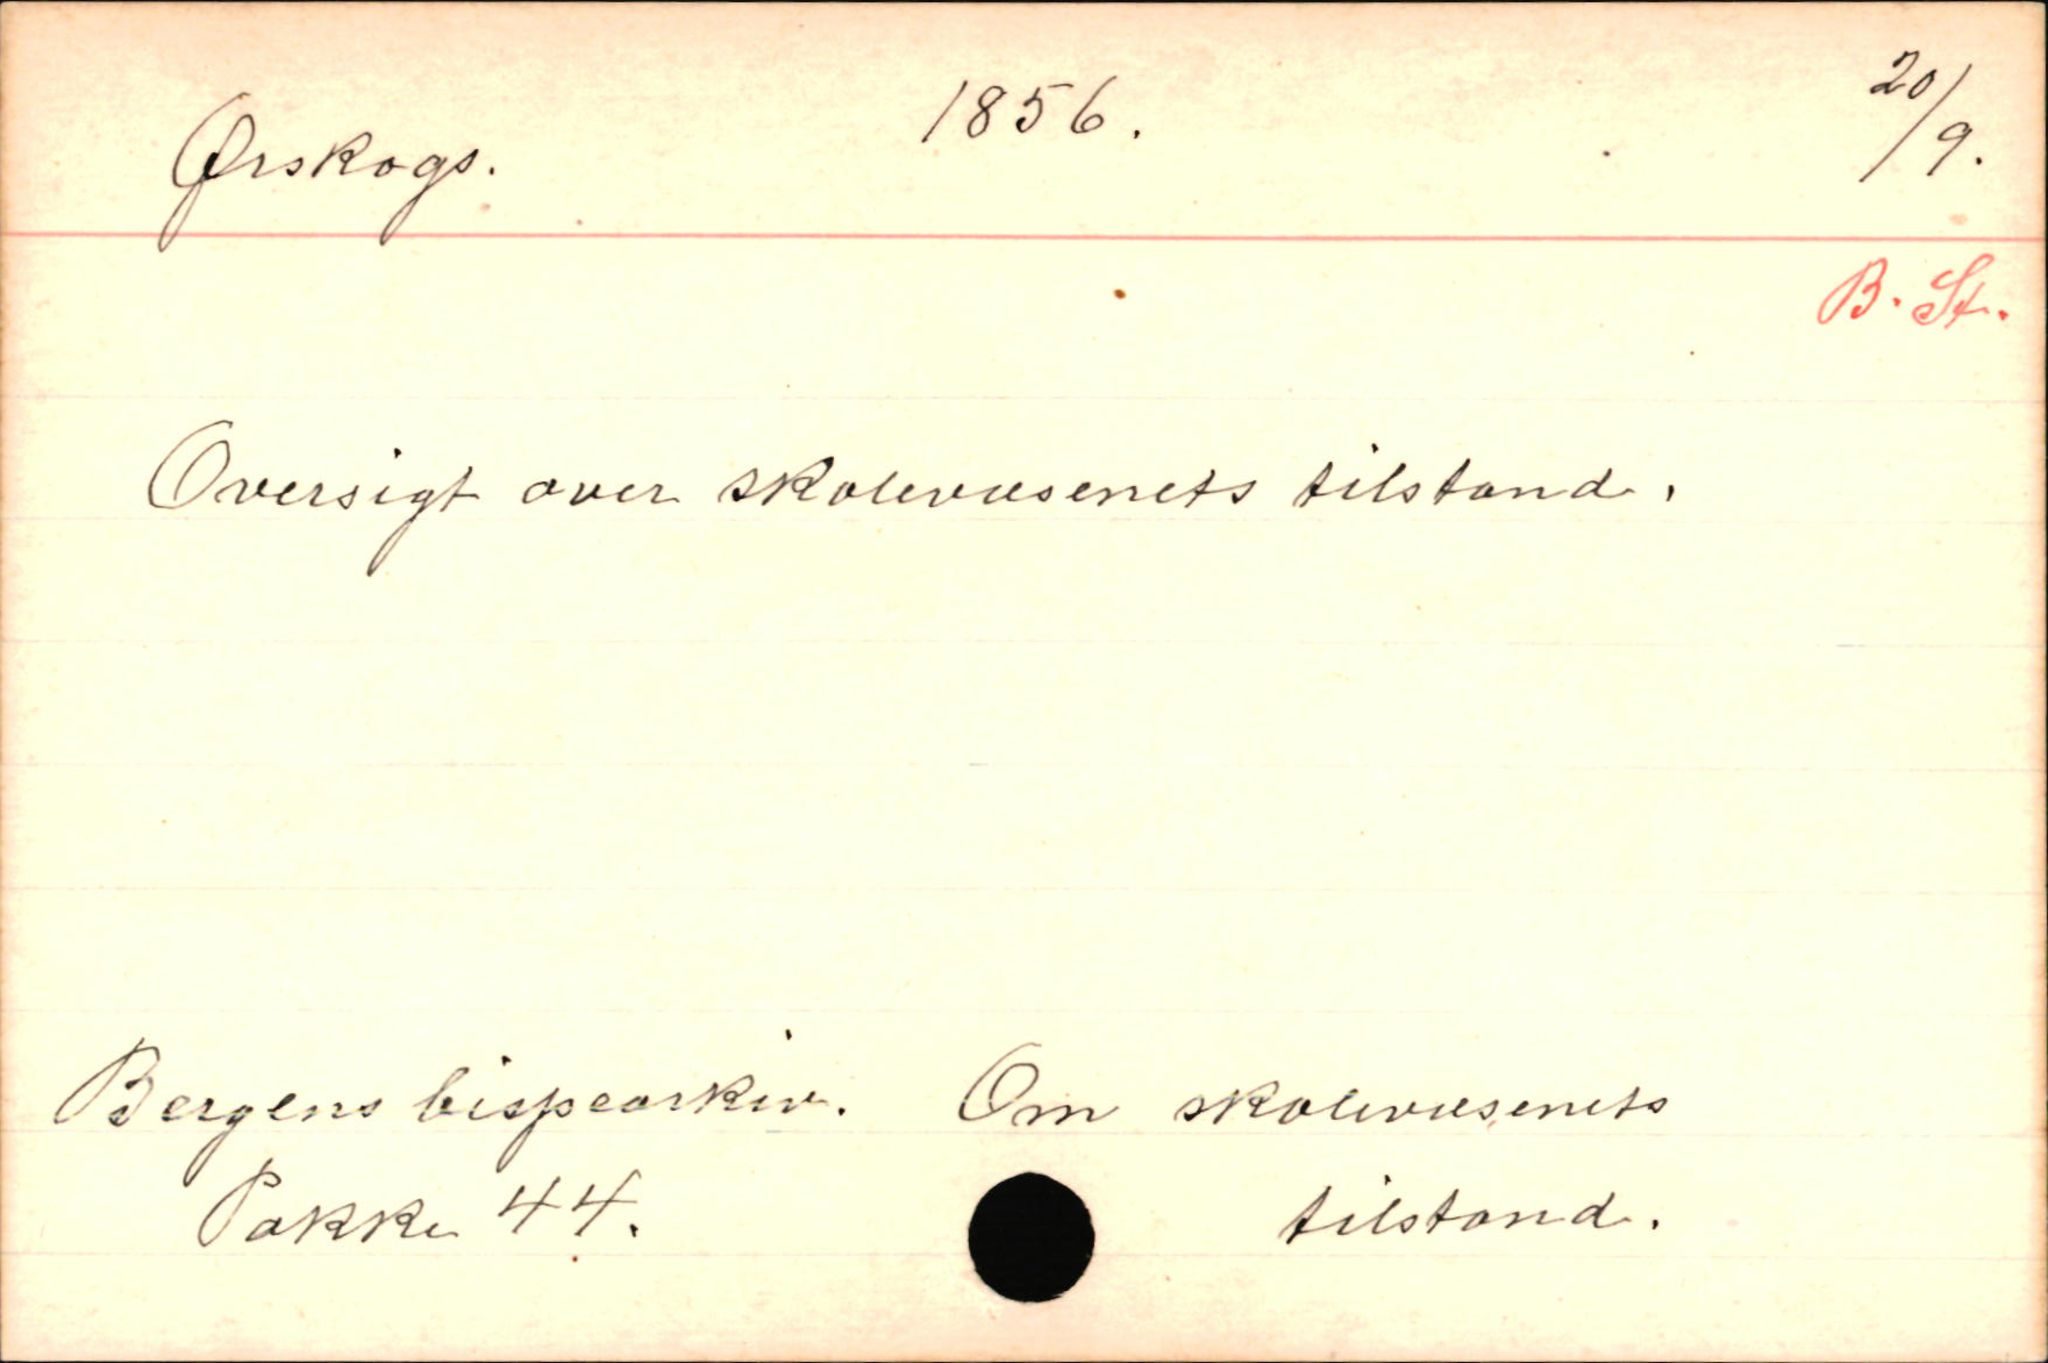 Ørskogs. 1856. 20/9.
B. St.
Oversigt over skolevæsenets tilstand.
Bergens bispearkiv. Om skolevæsenets
Pakke 44. tilstand.